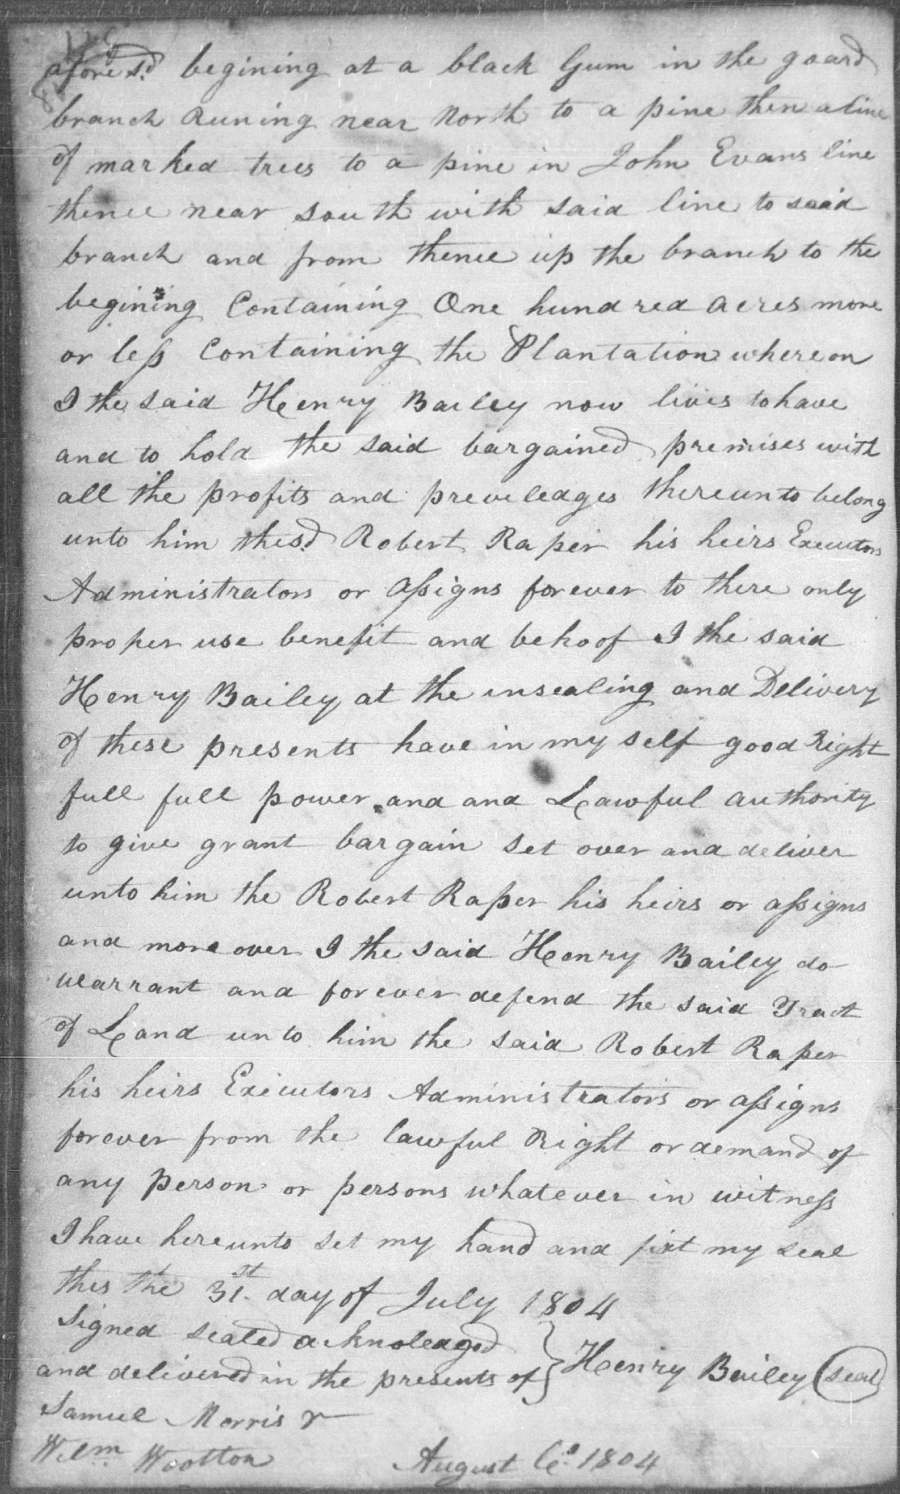 afores.d begining at a black Gum in the goard
branch Runing near North to a pine then a line
of marked trees to a pine in John Evans line
thence near south with said line to said
branch and from thence up the branch to the
begining Containing One hundred acres more
or less Containing the Plantation whereon
I the said Henry Bailey now lives to have
and to hold the said bargained premises with
all the profits and preveledges thereunto belong
unto him the sd Robert Raper his heirs Executors
Administrators or assigns forever to there only
proper use benefit and behoof I the said
Henry Bailey at the insealing and Delivery
of these presents have in my self good Right
full full power and and Lawful authority
to give grant bargain set over and deliver
unto him the Robert Raper his heirs or assigns
and more over I the said Henry Bailey do
warrant and forever defend the said Tract
of Land unto him the said Robert Raper
his heirs Executors Administrators or assigns
forever from the lawful Right or demand of
any person or persons whatever in witness
I have hereunto set my hand and fixt my seal
this the 31st day of July 1804
Signed sealed acknoledged
and delivered in the presents of } Henry Bailey (seal)
Samuel Morris
Wilm Wootton August 1804